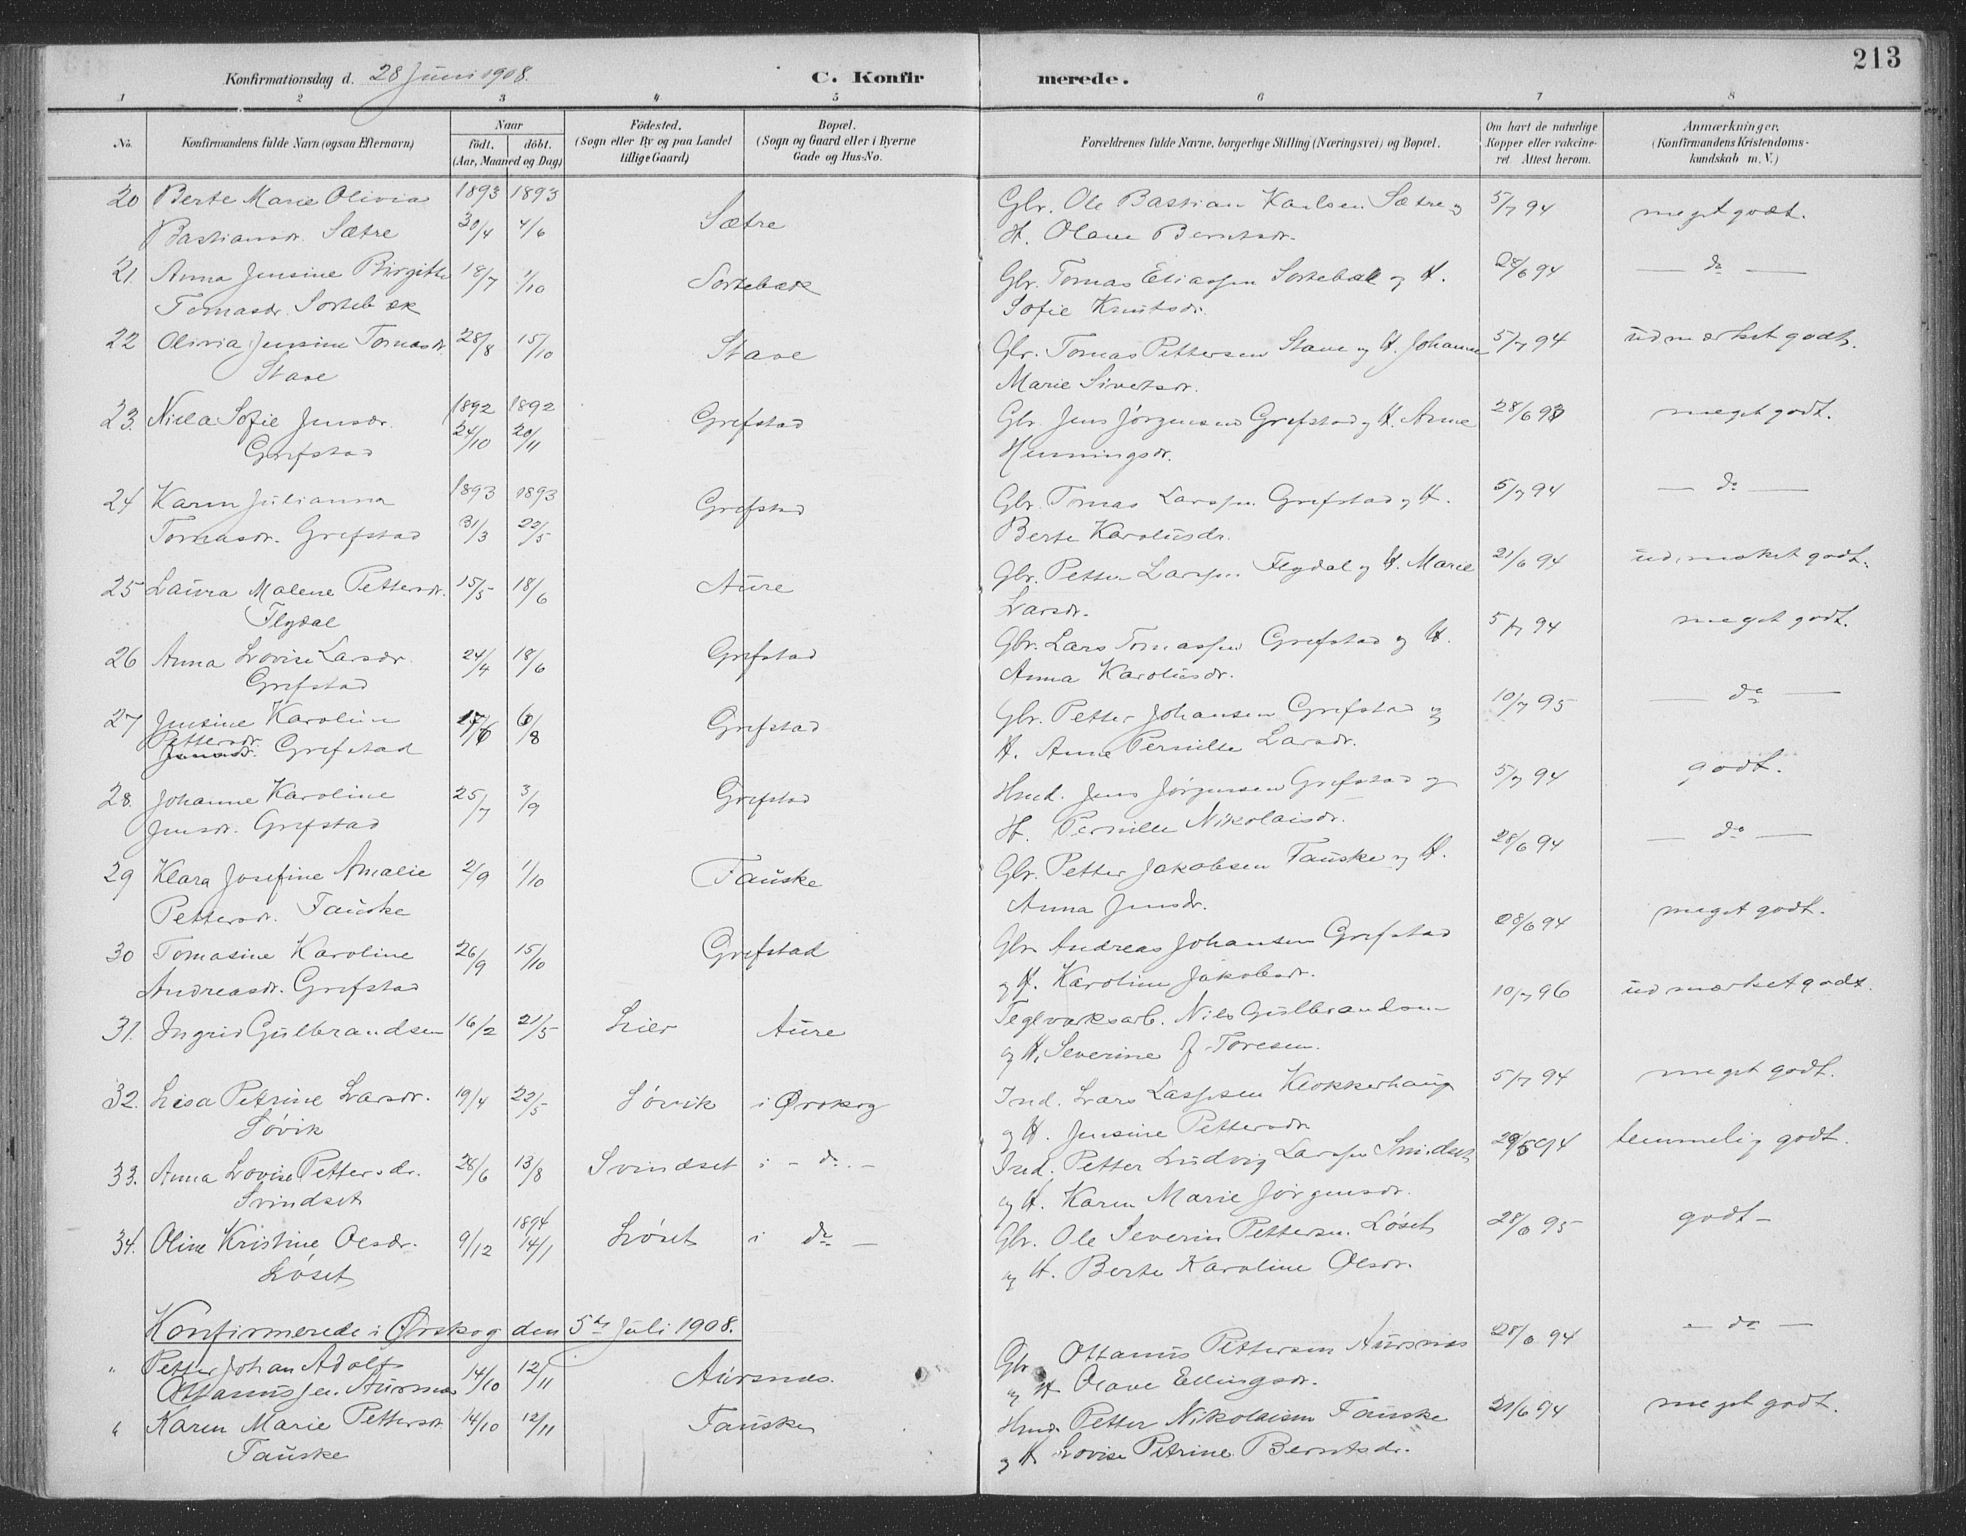 213
Konfirmationsdag d. 28 Juni 1908. C. Konfirmerede.
1 2 3 4 5 6 7 8
No. Konfirmandens fulde Navn (ogsaa Efternavn) Naar födt. döbt. (Aar, Maaned og Dag) Födested. (Sogn eller By og paa Landet tillige Gaard) Bopæl. (Sogn og Gaard eller i Byerne Gade og Hus-No. Forældrenes fulde Navne, borgerlige Stilling (Næringsvei) og Bopæl. Om havt de naturlige Kopper eller vaccineret. Attest herom. Anmærkninger, (Konfirmandens Kristendomskundskab m. V.)
20 Berte Marie Olivia 1893 1893 Sætre Gbr. Ole Bastian Karlsen Sætre og 5/7 94 meget godt.
Bastiansdr. Sætre 30/4 4/6 H. Olave Berntsdr.
21. Anna Jensine Birgitte 18/7 1/10 Sortebæk Gbr. Tomas Eliassen Sortebæk og H. 28/6 94 — do —
Tomasdr. Sortebæk Sofie Knutsdr.
22 Olivia Jensine Tomasdr. 28/8 15/10 Stave Gbr. Tomas Pettersen Stave og H. Johanne 5/7 94 udmærket godt.
Stave Marie Sivertsdr.
23. Sofie Jensdr. 1892 1892 Grefstad Gbr. Jens Jørgensen Grefstad og H. Anne 28/6 93 meget godt.
Grefstad 24/10 20/11 Henningsdr.
24 Karen Julianna 1893 1893 Grefstad Gbr. Tomas Larssen Grefstad og H. 5/7 94 — do —
Tomasdr. Grefstad 31/3 22/5 Berte Karolusdr.
25 Laura Malene Pettersdr. 15/5 18/6 Aure Gbr. Petter Larssen Flydal og H. Marie 21/6 94 udmærket godt.
Flydal Larsdr.
26 Anna Lovise Larsdr. 24/4 18/6 Grefstad Gbr. Lars Tomassen Grefstad og H. 5/7 94 meget godt.
Grefstad Anna Karolusdr.
27 Jensine Karoline 17/6 6/8 Grefstad Gbr. Petter Johansen Grefstad og 10/7 95 — do —
Pettersdr.
Jensdr. Grefstad H. Anne Pernille Larsdr.
28. Johanne Karoline 25/7 3/9 Grefstad Hmd. Jens Jørgensen Grefstad og 5/7 94 godt.
Jensdr. Grefstad H. Pernille Nikolaisdr.
29 Klara Josefine Amalie 2/9 1/10 Fauske Gbr. Petter Jakobsen Fauske og H. 28/6 94 — do —
Pettersdr. Fauske Anna Jensdr.
30 Tomasine Karoline 26/9 15/10 Grefstad Gbr. Andreas Johansen Grefstad 28/6 94 meget godt.
Andreasdr. Grefstad og H. Karoline Jakobsdr.
31. Ingrid Gulbrandsen 16/2 21/5 Lier Aure Teglværksarb. Nils Gulbrandsen 10/7 96 udmærket godt.
og H. Severine f. Toresen.
32. Lisa Petrine Larsdr. 19/4 22/5 Søvik i Ørskog Ind. Lars Lassesen Klokkerhaug 5/7 94 meget godt.
Søvik og H. Jensine Pettersdr.
33. Anna Lovise Pettersdr. 28/6 13/8 Svindset i - do. - Ind. Petter Ludvig Larssen Svindset 94 temmelig godt.
Svindset og H. Karen Marie Jørgensdr.
34. Oline Kristine Olsdr. 9/12 1894 14/1 Løset i do — Gbr. Ole Severin Pettersen Løset 28/6 95 godt —
Løset og H. Berte Karoline Olsdr.
Konfirmerede i Ørskog den 5te Juli 1908.
" Petter Johan Adolf 14/10 12/11 Aursnes. Gbr. Ottanus Pettersen Aursnes 28/6 94 — do —
Ottanussen Aursnes og H. Olave Ellingsdr.
" Karen Marie Pettersdr. 14/10 12/11 Fauske Hmd. Petter Nikolaisen Fauske 21/6 94 meget godt.
Fauske og H. Lovise Petrine Berntsdr.